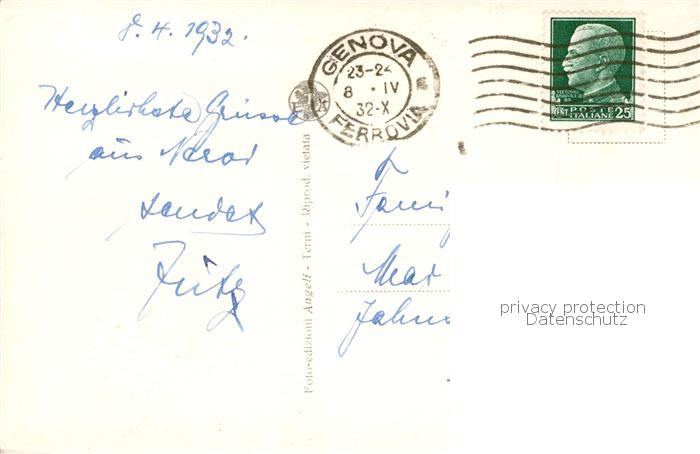 8. 4. 1932.
Herzlichste Grüsse
aus Nervi
sendet
Fritz
Foto-edizioni Angeli - Terni - Riprod. vietata
GENOVA
23-24
8 • IV
32-X
FERROVIA
POSTE
ITALIANE
CENT 25
Fami
Jahn
privacy protection
Datenschutz